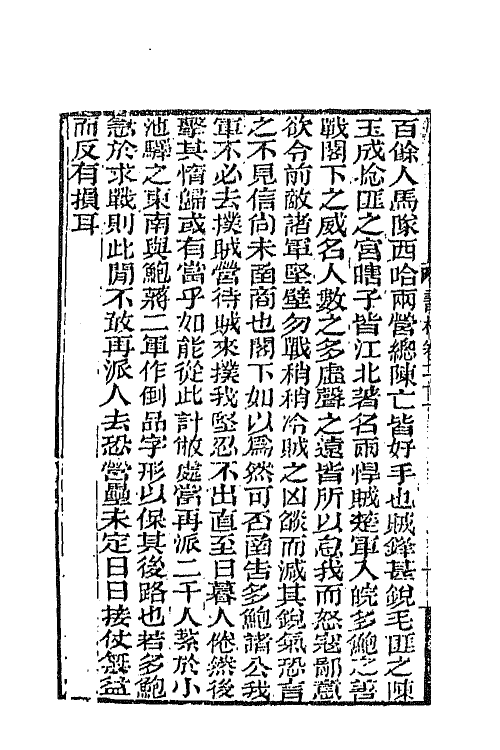 百餘人馬隊西哈兩營總陳亡皆好手也賊鋒甚銳毛匪之陳
玉成捻匪之宮瞎子皆江北著名兩悍賊楚軍入皖多鮑之善
戰閣下之威名人數之多虛聲之遠皆所以怠我而怒寇鄙意
欲令前敵諸軍堅壁勿戰稍稍冷賊之凶燄而減其銳氣恐言
之不見信尚未函商也閣下如以為然可否函告多鮑諸公我
軍不必去撲賊營待賊來撲我堅忍不出直至日暮人倦然後
擊其惰歸或有當乎如能從此計敝處當再派二千人紮於小
池驛之東南與鮑蔣二軍作倒品字形以保其後路也若多鮑
急於求戰則此閒不敢再派人去恐營壘未定日日接仗無益
而反有損耳